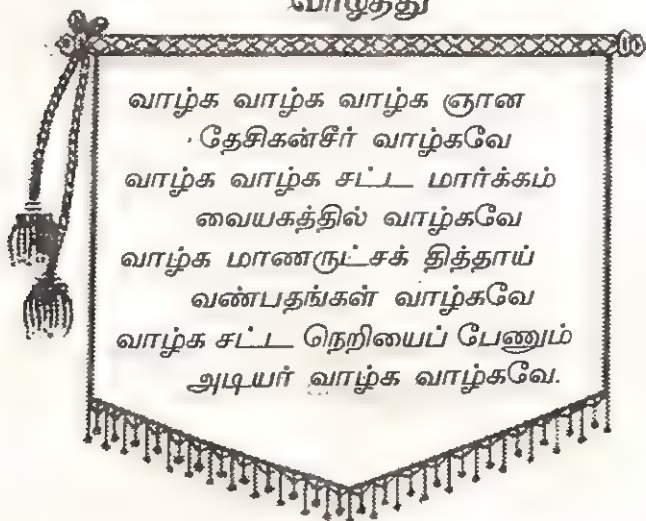 வாழ்த்து
வாழ்க வாழ்க வாழ்க ஞான
தேசிகன்சீர் வாழ்கவே
வாழ்க வாழ்க சட்ட மார்க்கம்
வையகத்தில் வாழ்கவே
வாழ்க மாணருட்சக் தித்தாய்
வண்பதங்கள் வாழ்கவே
வாழ்க சட்ட நெறியைப் பேணும்
அடியர் வாழ்க வாழ்கவே.